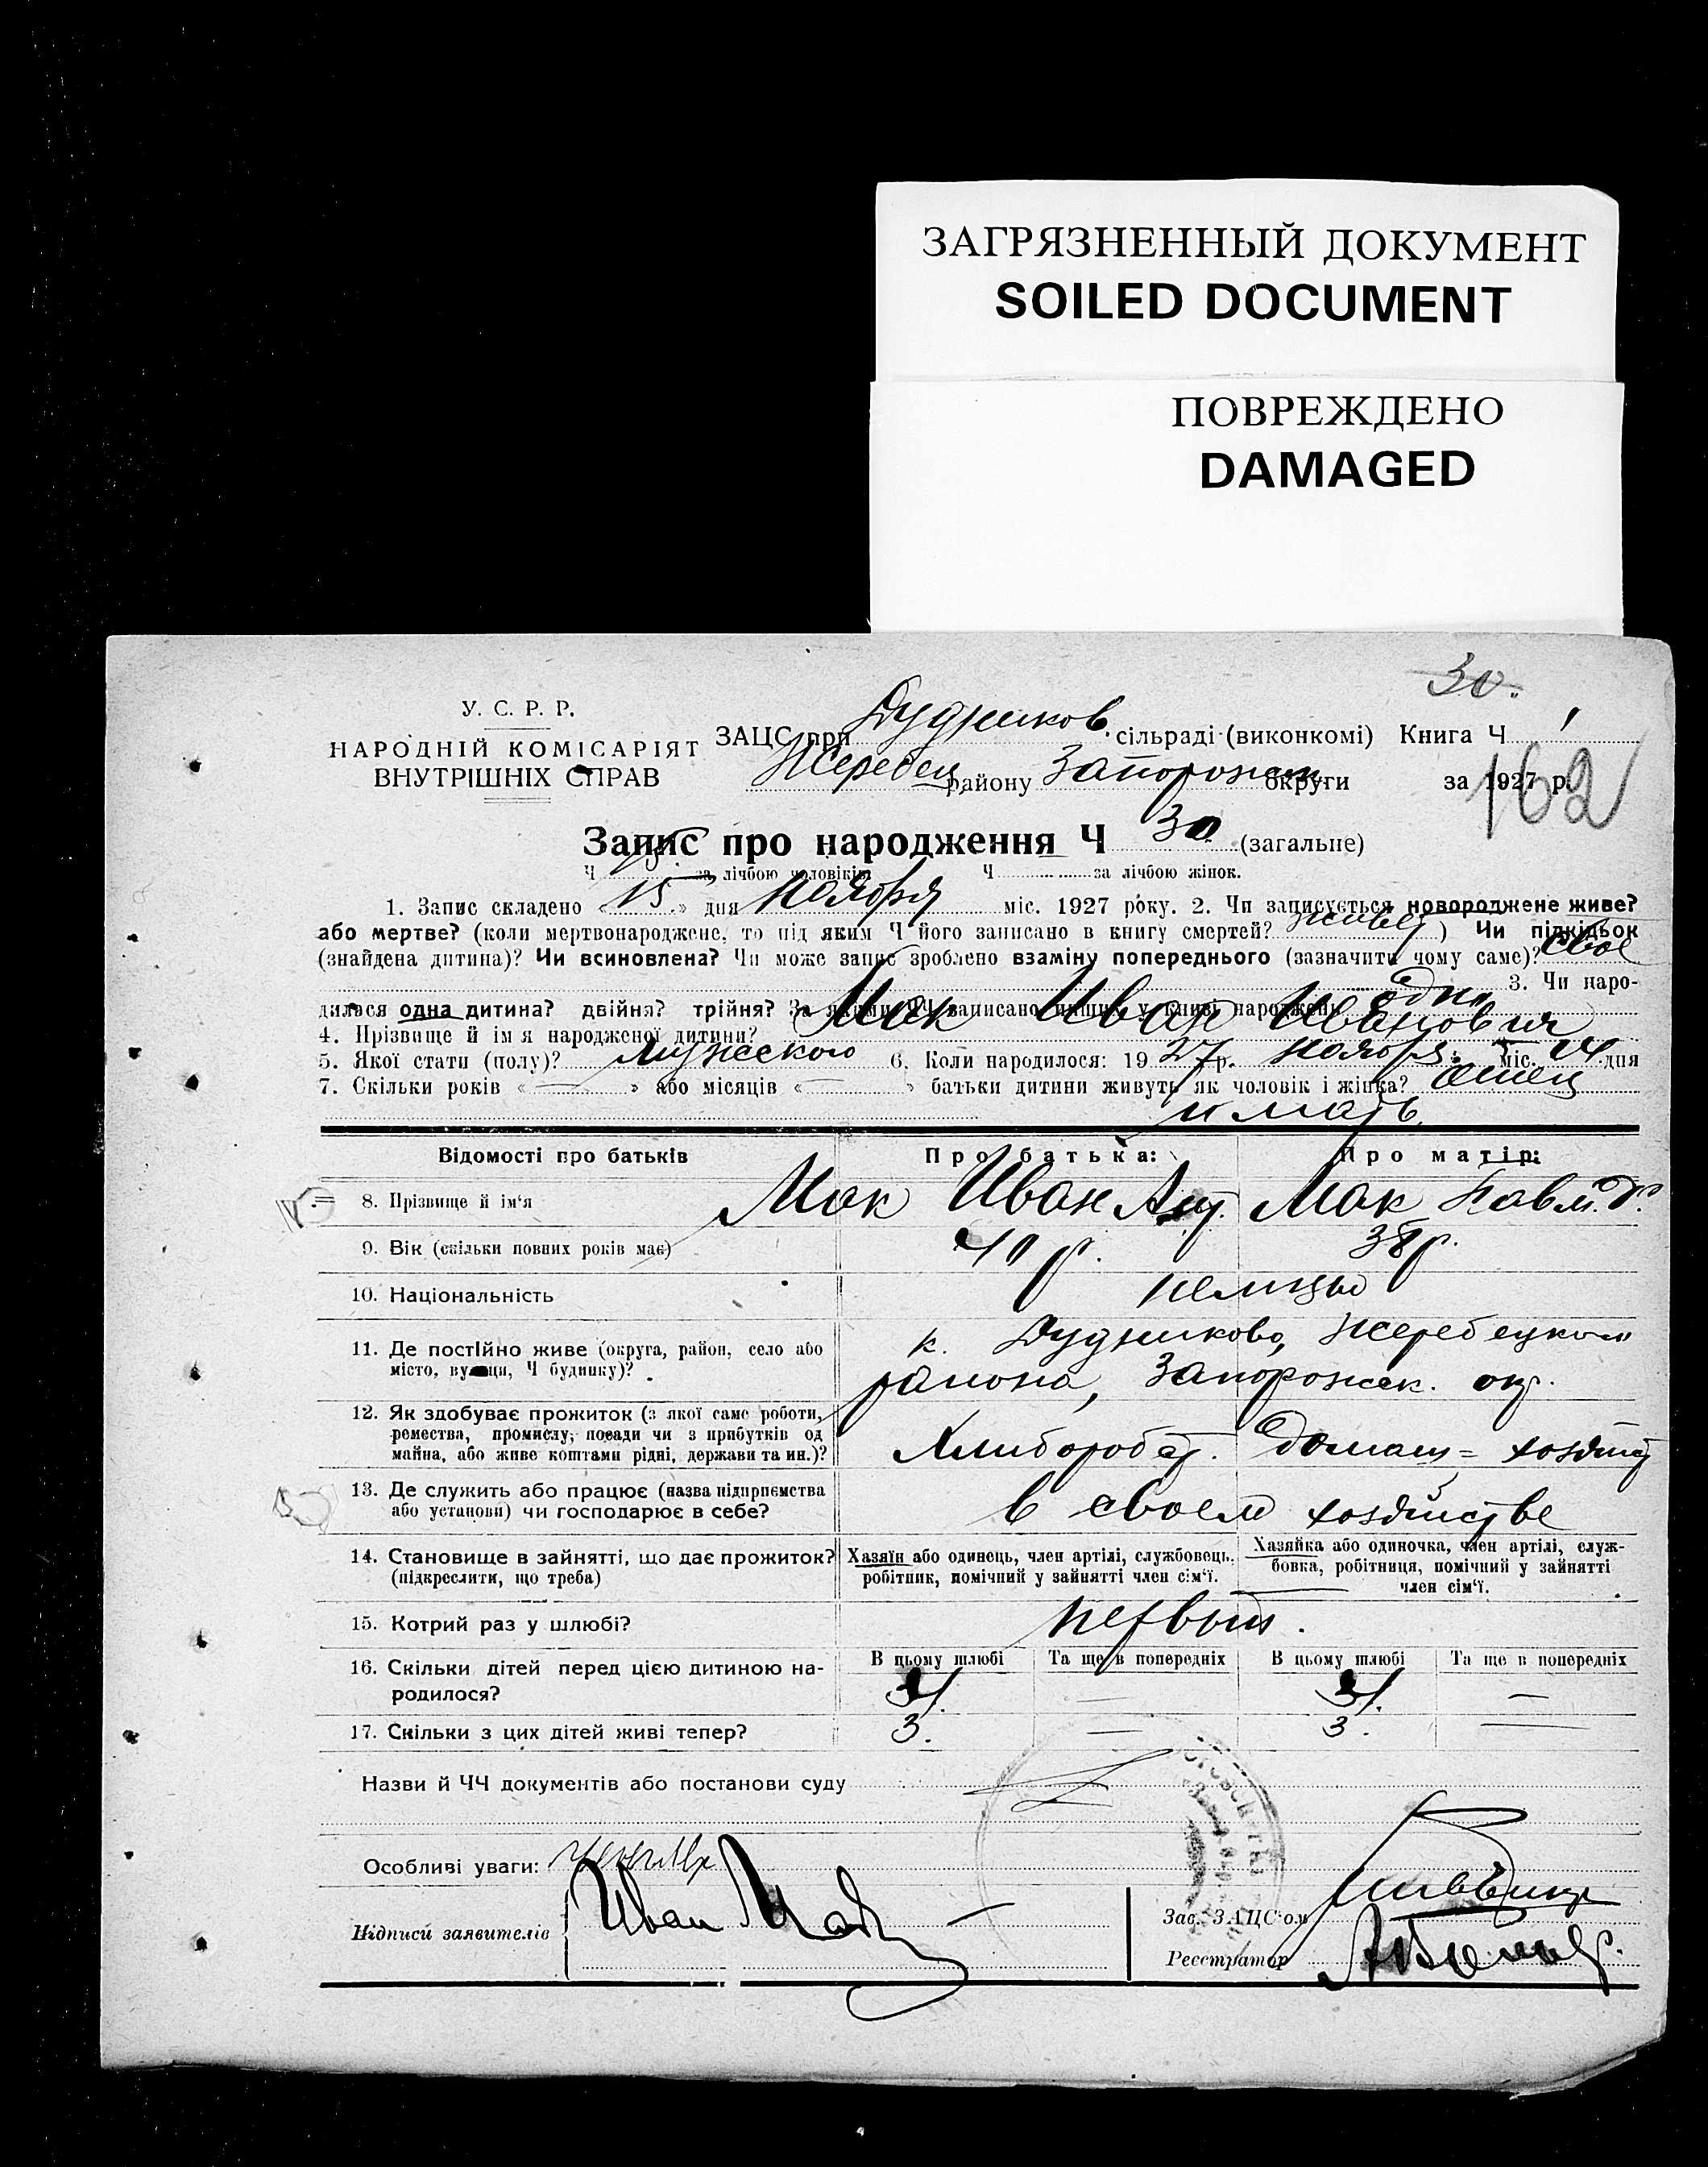 ЗАГРЯЗНЕННЫЙ ДОКУМЕНТ
SOILED DOCUMENT
ПОВРЕЖДЕНО
DAMAGED
30.
У. С. Р. Р.
НАРОДНІЙ КОМІСАРІЯТ
ВНУТРІШНІХ СПРАВ
ЗАЦС при Дудников. сільраді (виконкомі) Книга Ч 1
Жеребец району Запорожск. округи за 1927 р.
162
Запис про народження Ч 30 (загальне)
Ч 15 за лічбою чоловіків Ч за лічбою жінок.
1. Запис складено « 15 » дня Ноября міс. 1927 року. 2. Чи записується новороджене живе?
або мертве? (коли мертвонароджене, то під яким Ч його записано в книгу смертей? живой) Чи підкідьок
(знайдена дитина)? Чи всиновлена? Чи може запис зроблено взаміну попереднього (зазначити чому саме)? свое
3. Чи наро-
дилася одна дитина? двійня? трійня? За якими ЧЧ записано инших у книзі народжень одно
4. Прізвище й ім'я народженої дитини? Мак Иван Иванович
5. Якої стати (полу)? Мужеского 6. Коли народилося: 1927 р. ноября міс. 14 дня
7. Скільки років « — » або місяців « — » батьки дитини живуть як чоловік і жінка? отец
и мать
Відомості про батьків Про батька: Про матір:
8. Прізвище й ім'я Мак Иван Мак
9. Вік (скільки повних років має) 40 р. 38 р.
10. Національність немцы
11. Де постійно живе (округа, район, село або к. Дудниково, Жеребецкого
місто, вулиця, Ч будинку)? района, Запорожск. окр.
12. Як здобуває прожиток (з якої саме роботи,
ремества, промислу, посади чи з прибутків од
майна, або живе коштами рідні, держави та ин.)? Хлибороб домаш=
13. Де служить або працює (назва підприємства
або установи) чи господарює в себе? в своем хозяйстве
14. Становище в зайнятті, що дає прожиток?
(підкреслити, що треба)
Хазяїн або одинець, член артілі, службовець,
робітник, помічний у зайнятті член сім'ї.
Хазяйка або одиночка, член артілі, служ-
бовка, робітниця, помічний у зайнятті
член сім'ї.
15. Котрий раз у шлюбі? первый.
16. Скільки дітей перед цією дитиною на-
родилося?
В цьому шлюбі Та ще в попередніх В цьому шлюбі Та ще в попередніх
17. Скільки з цих дітей живі тепер? 3. — 3. —
Назви й ЧЧ документів або постанови суду
Особливі уваги:
Підписи заявителів Иван Мак
Зав. ЗАЦС'ом
Реєстратор